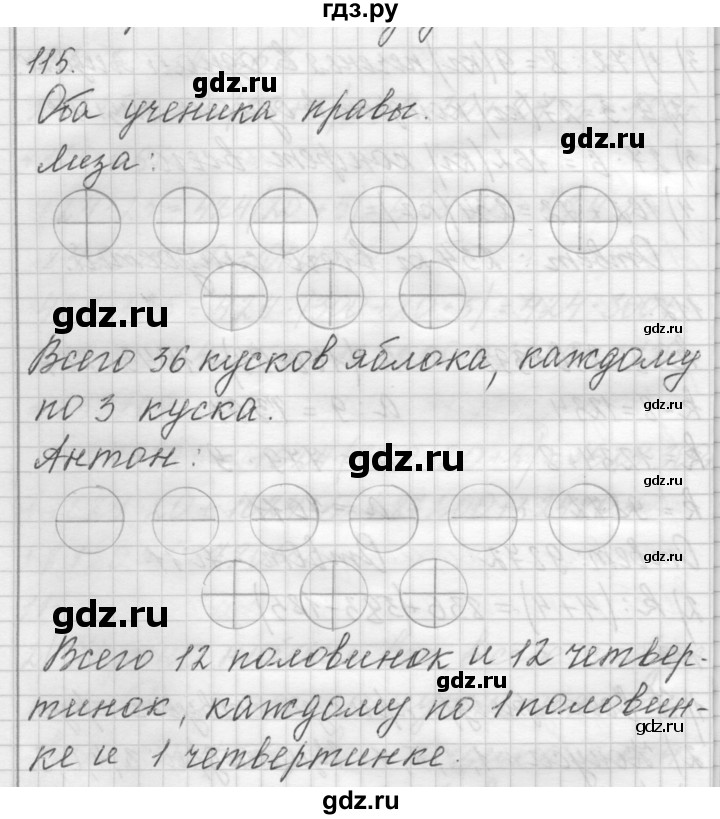 гдз.ру
115.
gdz.ru
Оба ученика правы.
gdz.ru
Лиза:
gdz.ru
gdz.ru
Всего 36 кусков яблока, каждому
по 3 куска.
gdz.ru
Антон:
gdz.ru
gdz.ru
gdz.ru
gdz.ru
Всего 12 половинок и 12 четвер-
gdz.ru
тинок, каждому по 1 половин-
gdz.ru
ке и 1 четвертинке.
gdz.ru